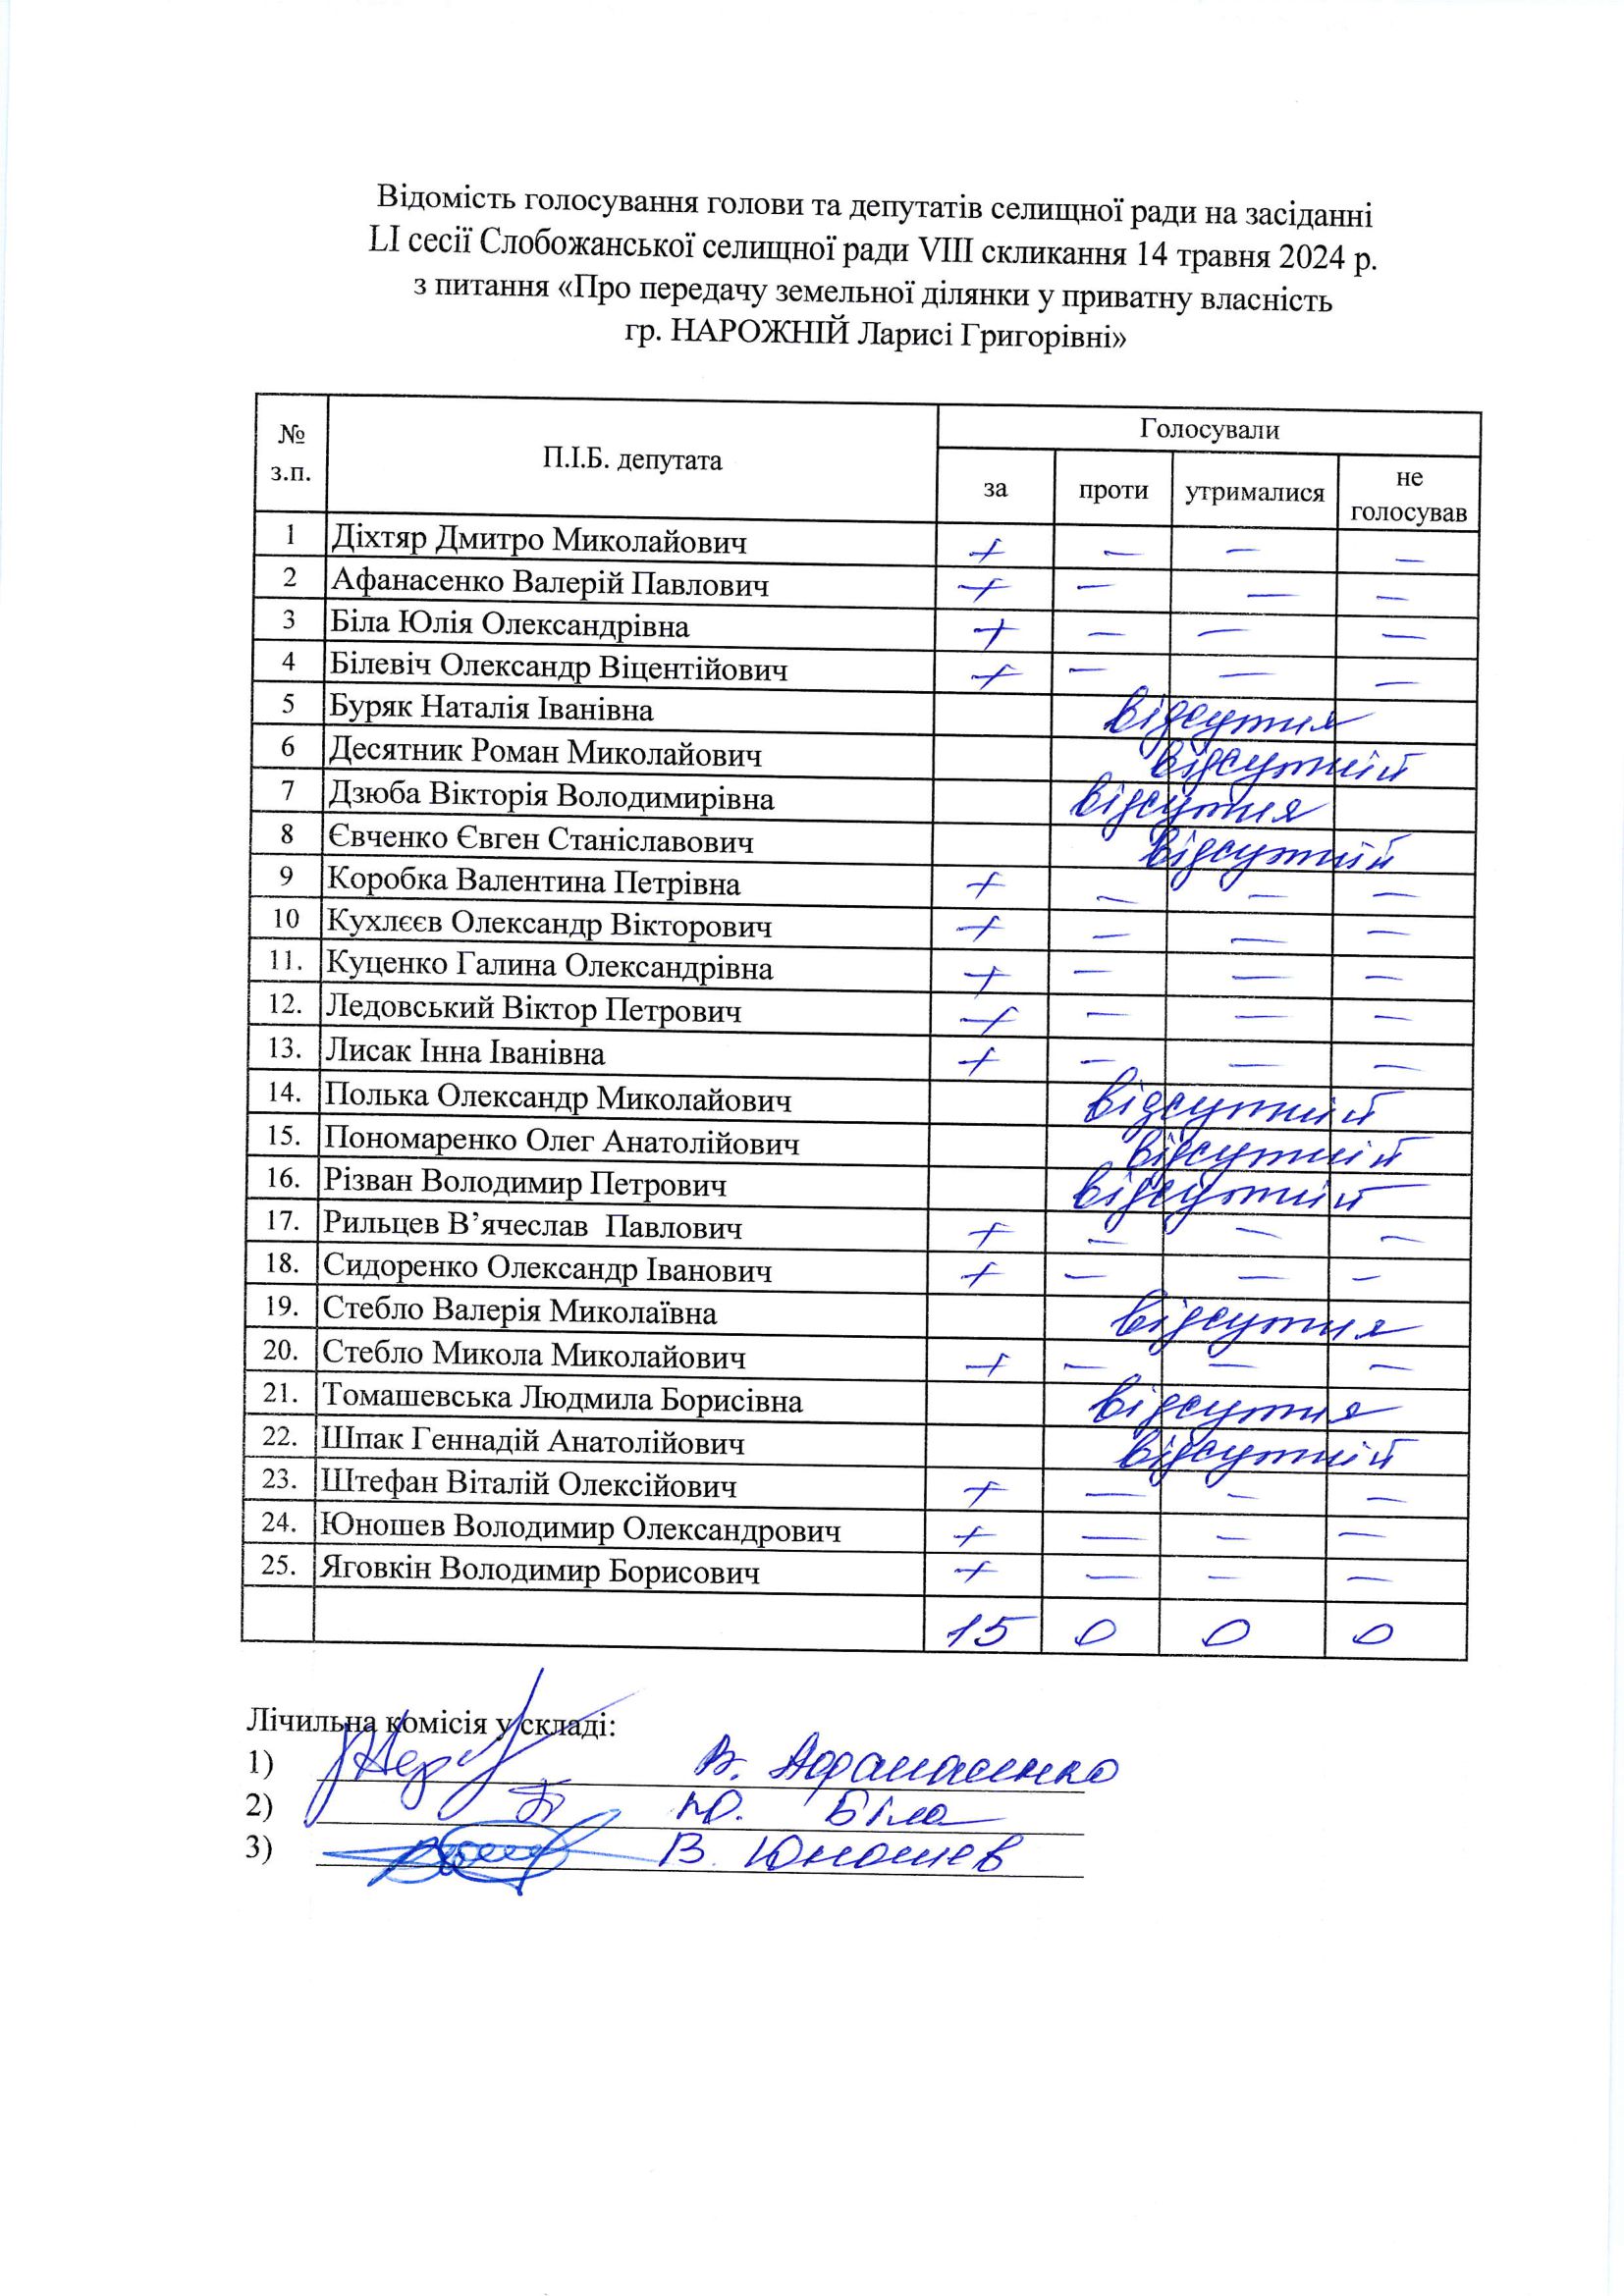 Відомість голосування голови та депутатів селищної ради на засіданні
LI сесії Слобожанської селищної ради VIII скликання 14 травня 2024 р.
з питання «Про передачу земельної ділянки у приватну власність
гр. НАРОЖНІЙ Ларисі Григорівні»
№ з.п. П.І.Б. депутата Голосували
за проти утрималися не голосував
1 Діхтяр Дмитро Миколайович + — — —
2 Афанасенко Валерій Павлович + — — —
3 Біла Юлія Олександрівна + — — —
4 Білевіч Олександр Віцентійович + — — —
5 Буряк Наталія Іванівна відсутня
6 Десятник Роман Миколайович відсутній
7 Дзюба Вікторія Володимирівна відсутня
8 Євченко Євген Станіславович відсутній
9 Коробка Валентина Петрівна + — — —
10 Кухлєєв Олександр Вікторович + — — —
11. Куценко Галина Олександрівна + — — —
12. Ледовський Віктор Петрович + — — —
13. Лисак Інна Іванівна + — — —
14. Полька Олександр Миколайович відсутній
15. Пономаренко Олег Анатолійович відсутній
16. Різван Володимир Петрович відсутній
17. Рильцев В’ячеслав Павлович + — — —
18. Сидоренко Олександр Іванович + — — —
19. Стебло Валерія Миколаївна відсутня
20. Стебло Микола Миколайович + — — —
21. Томашевська Людмила Борисівна відсутня
22. Шпак Геннадій Анатолійович відсутній
23. Штефан Віталій Олексійович + — — —
24. Юношев Володимир Олександрович + — — —
25. Яговкін Володимир Борисович + — — —
15 0 0 0
Лічильна комісія у складі:
1) В. Афанасенко
2) Ю. Біла
3) В. Юношев